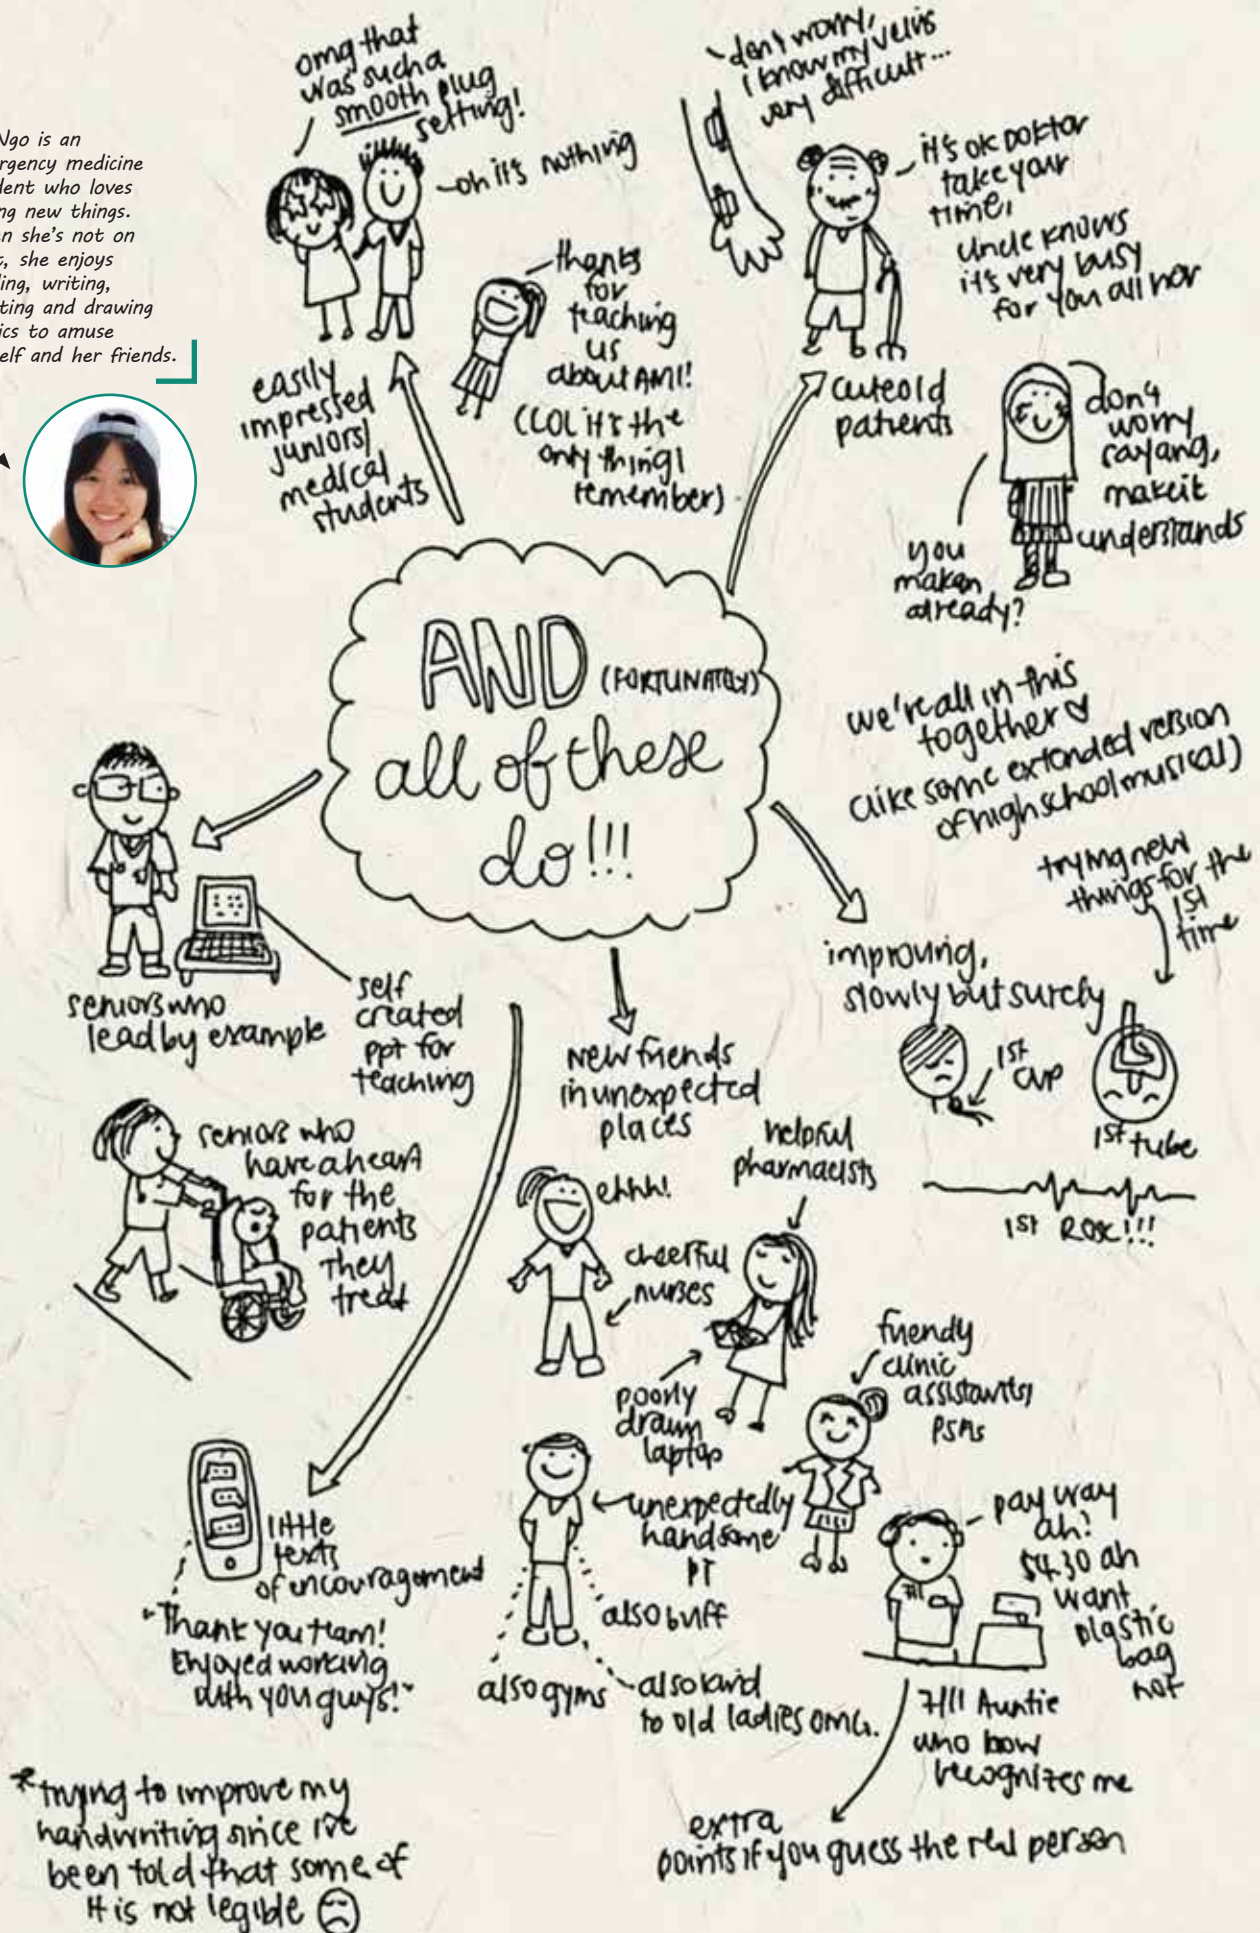 Ngo is an
rgency medicine
dent who loves
ng new things.
en she's not on
t, she enjoys
ling, writing,
ting and drawing
ics to amuse
elf and her friends.
omg that
was such a
smooth plug
setting!
oh it's nothing
easily
impressed
juniors/
medical
students
thanks
for
teaching
us
about AMI!
(LOL it's the
only thing I
remember)
don't worry,
I know my veins
very difficult...
it's ok Doktor
take your
time,
Uncle knows
it's very busy
for you all hor
cute old
patients
don't
worry
sayang,
makcik
understands
you
makan
already?
AND (FORTUNATELY)
all of these
do!!!
we're all in this
together
(like some extended version
of high school musical)
trying new
things for the
1st
time
improving,
slowly but surely
1st
1st tube
1st ROSC!!!
seniors who
lead by example
self
created
ppt for
teaching
seniors who
have a heart
for the
patients
they
treat
New friends
in unexpected
places
ehhh!
cheerful
nurses
helpful
pharmacists
poorly
drawn
laptop
friendy
clinic
assistants/
PSAs
unexpectedly
handsome
PT
also buff
also gyms
also kind
to old ladies OMG.
pay way
ah?
$4.30 ah
want
plastic
bag
not
7/11 Auntie
who now
recognizes me
extra
points if you guess the real person
little
texts
of encouragement
"Thank you team!
Enjoyed working
with you guys!"
*trying to improve my
handwriting since I've
been told that some of
it is not legible